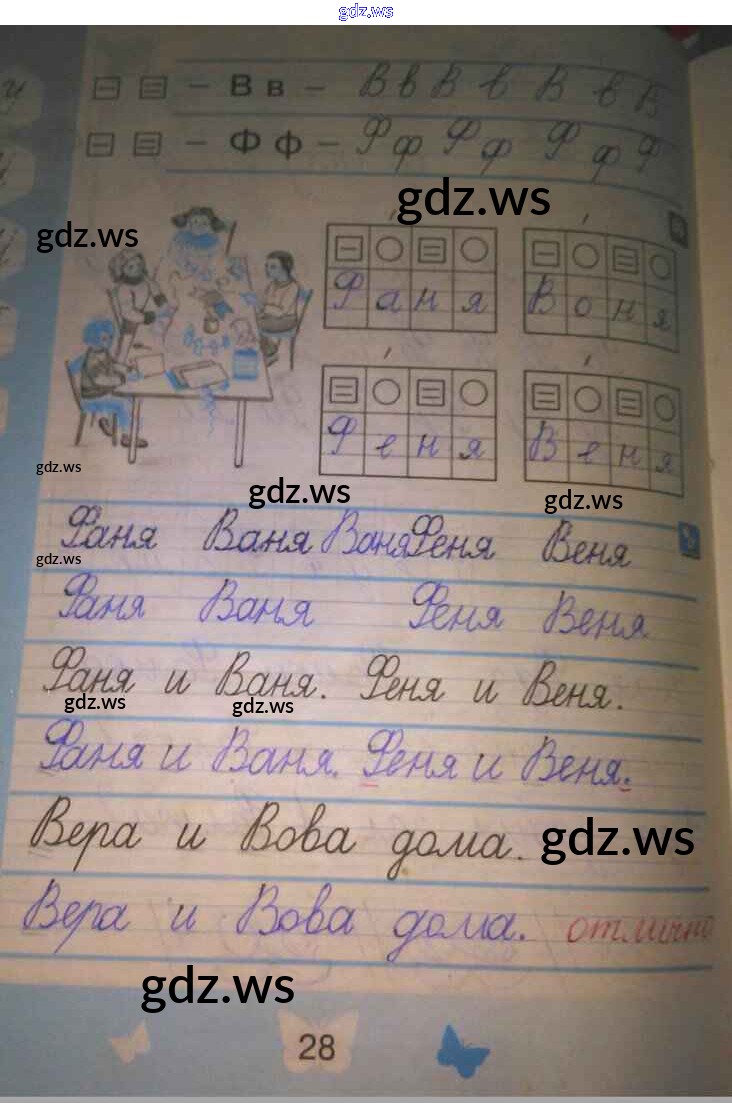 gdz.ws
– В в – В в В в В в В
– Ф ф – Ф ф Ф ф Ф ф Ф
gdz.ws
gdz.ws
Ф а н я В о н я
Ф е н я В е н я
gdz.ws
gdz.ws
gdz.ws
Фаня Ваня Ваня Феня Веня
gdz.ws
Фаня Ваня Феня Веня
Фаня и Ваня. Феня и Веня.
gdz.ws
gdz.ws
Фаня и Ваня. Феня и Веня.
Вера и Вова дома.
gdz.ws
Вера и Вова дома. отлично
gdz.ws
28